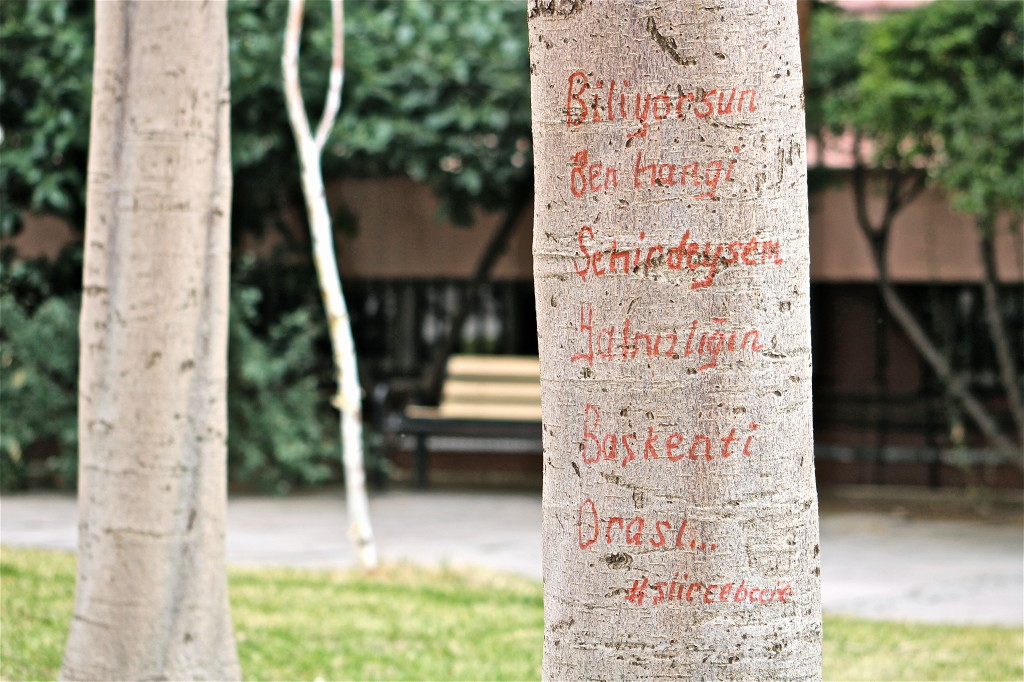 Biliyorsun
Ben hangi
Şehirdeysem
Yalnızlığın
Başkenti
Orası...